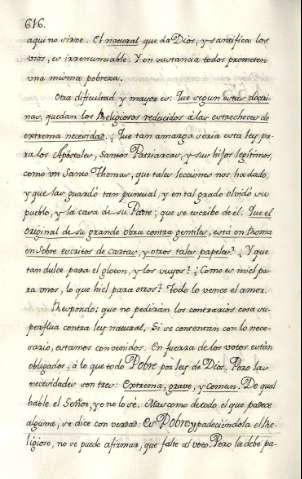 616.
aqui no sirve. El natural que da Dios, y santifica los
vivos, es irrenunciable. Y en sustancia todos prometen
una misma pobreza.
Otra dificultad, y mayor es: Que segun estas doctri-
nas, quedan los Religiosos reducidos à las estrecheces de
extrema necesidad. ¿Que tan amarga seria esta ley pa-
ra los Apostoles, Santos Patriarcas, y sus hijos legitimos,
como un Santo Thomas, que tales lecciones nos ha dado,
y que las guardò tan puntual, y en tal grado olvidò su
pueblo, y la casa de su Padre; que se escribe de él. Que el
original de su grande obra contra gentiles, està en Roma
en sobre escritos de cartas, y otros tales papeles? ¿Y que
tan dulce para el gloton, y los suyos? ¿Como es miel pa-
ra unos, lo que hiel para otros? Todo lo vence el amor.
Respondo: que no pediràn los contrarios cosa su-
perflua contra ley natural. Si se contentan con lo nece-
sario, estamos convenidos. En fuerza de los votos estàn
obligados, à lo que todo Pobre por ley de Dios. Pero las
necesidades son tres: Extrema, grave, y comun. De qual
hable el Señor, yo no lo sè. Mas como de todo el que padece
alguna, se dice con verdad: Es Pobre; y padeciendola el Re-
ligioso, no se puede afirmar, que falte al voto. Pero la debe pa-